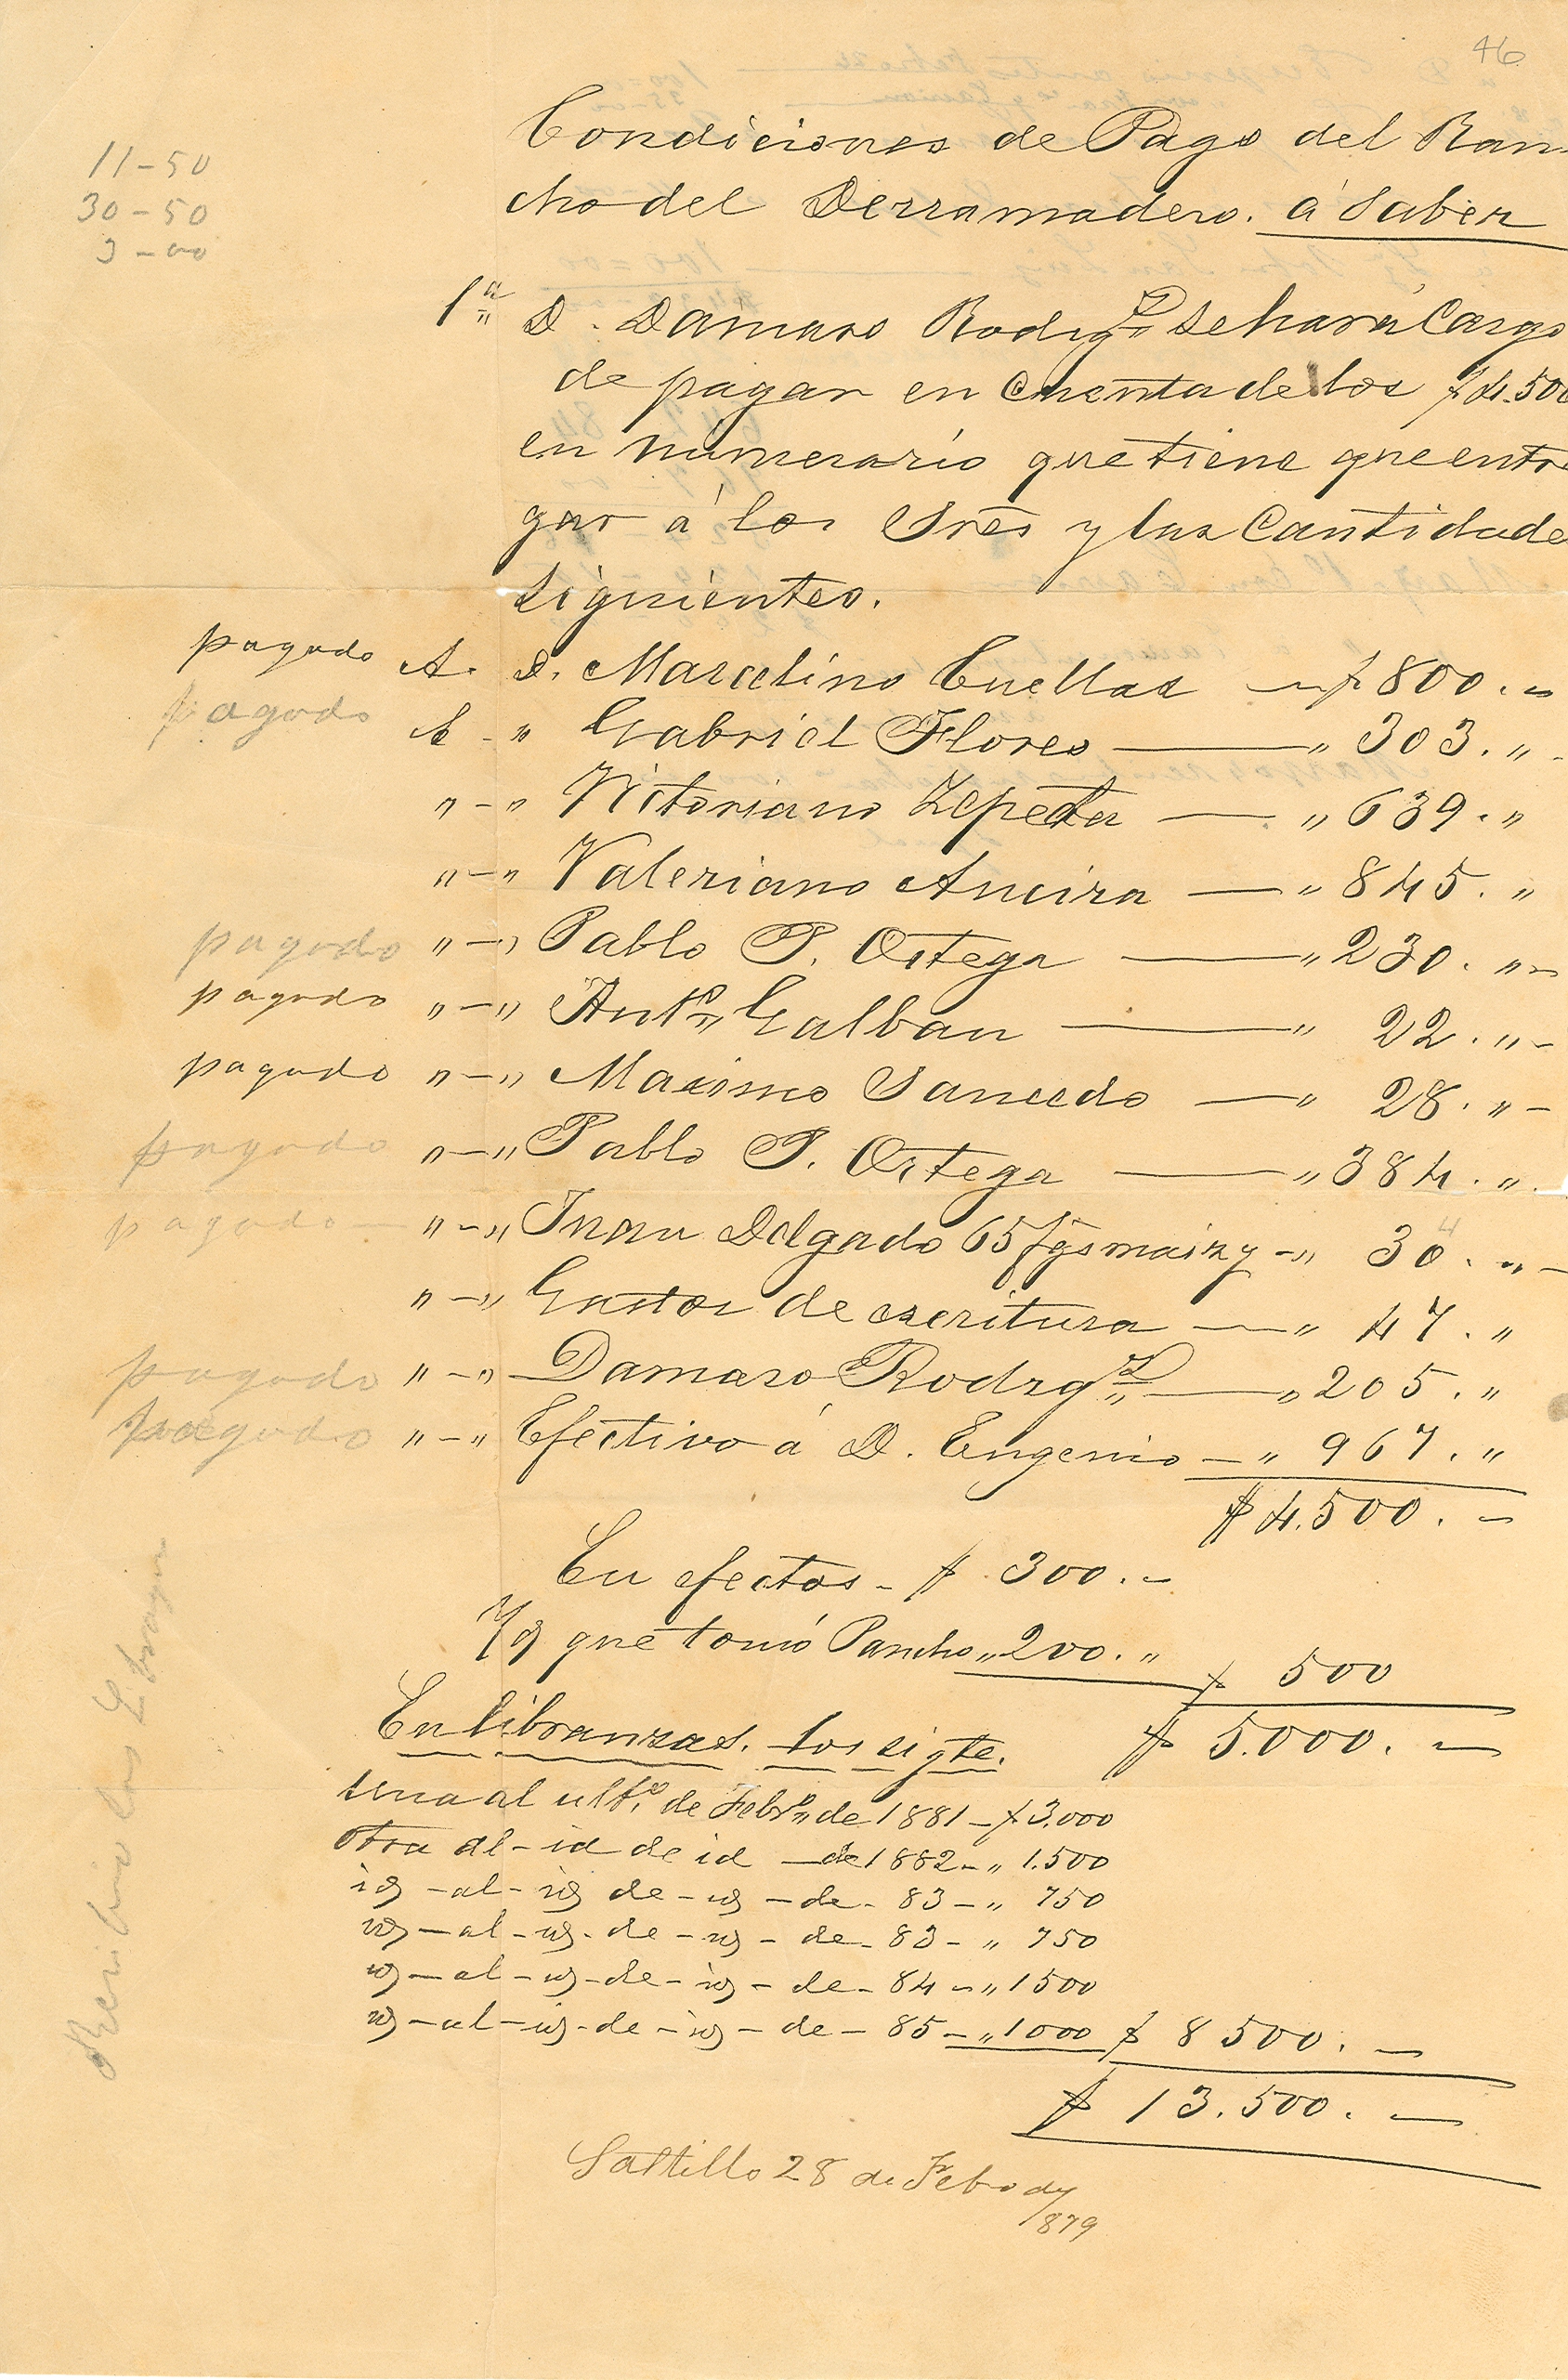 46
11-50
30-50
3-00
Condiciones de Pago del Ran
cho del Derramadero. á Saber
1ª D. Dámaso Rodrigz se hará Cargo
de pagar en Cuenta de los $4.500
en númerario que tiene que entre
gar á los Sres y las Cantidade
siguientes.
pagado A. D. Marcelino Cuellar — $ 800. -
pagado A - " Gabriel Flores — " 303. " -
" - " Vitoriano Zepeda — " 639. "
" - " Valeriano Ancira — " 845. "
pagado " - " Pablo P. Ortega — " 230. " -
pagado " - " Antº Galban — " 22. " -
pagado " - " Maximo Saucedo — " 28. " -
pagado " - " Pablo P. Ortega — " 384. "
pagado — " - " Juan Delgado 65 fgs maiz y - " 30. " -
" - " Gastos de escritura — " 47. "
pagado " - " Damaso Rodrgz — " 205. "
pagado " - " Efectivo á D. Eugenio — " 967. "
$ 4.500. -
En efectos - $ 300. -
Yd que tomó Pancho " 200. " $ 500
En libranzas. los sigte. $ 5.000. —
una al ultº. de Febrº de 1881 - $ 3.000
otra al - id de id — de 1882 - " 1.500
id - al - id de - id - de - 83 - " 750
id - al - id - de - id - de - 83 - " 750
id - al - id - de - id - de - 84 - " 1500
id - al - id - de - id - de - 85 - " 1000 $ 8500. —
$ 13.500. —
Saltillo 28 de Febo de/879